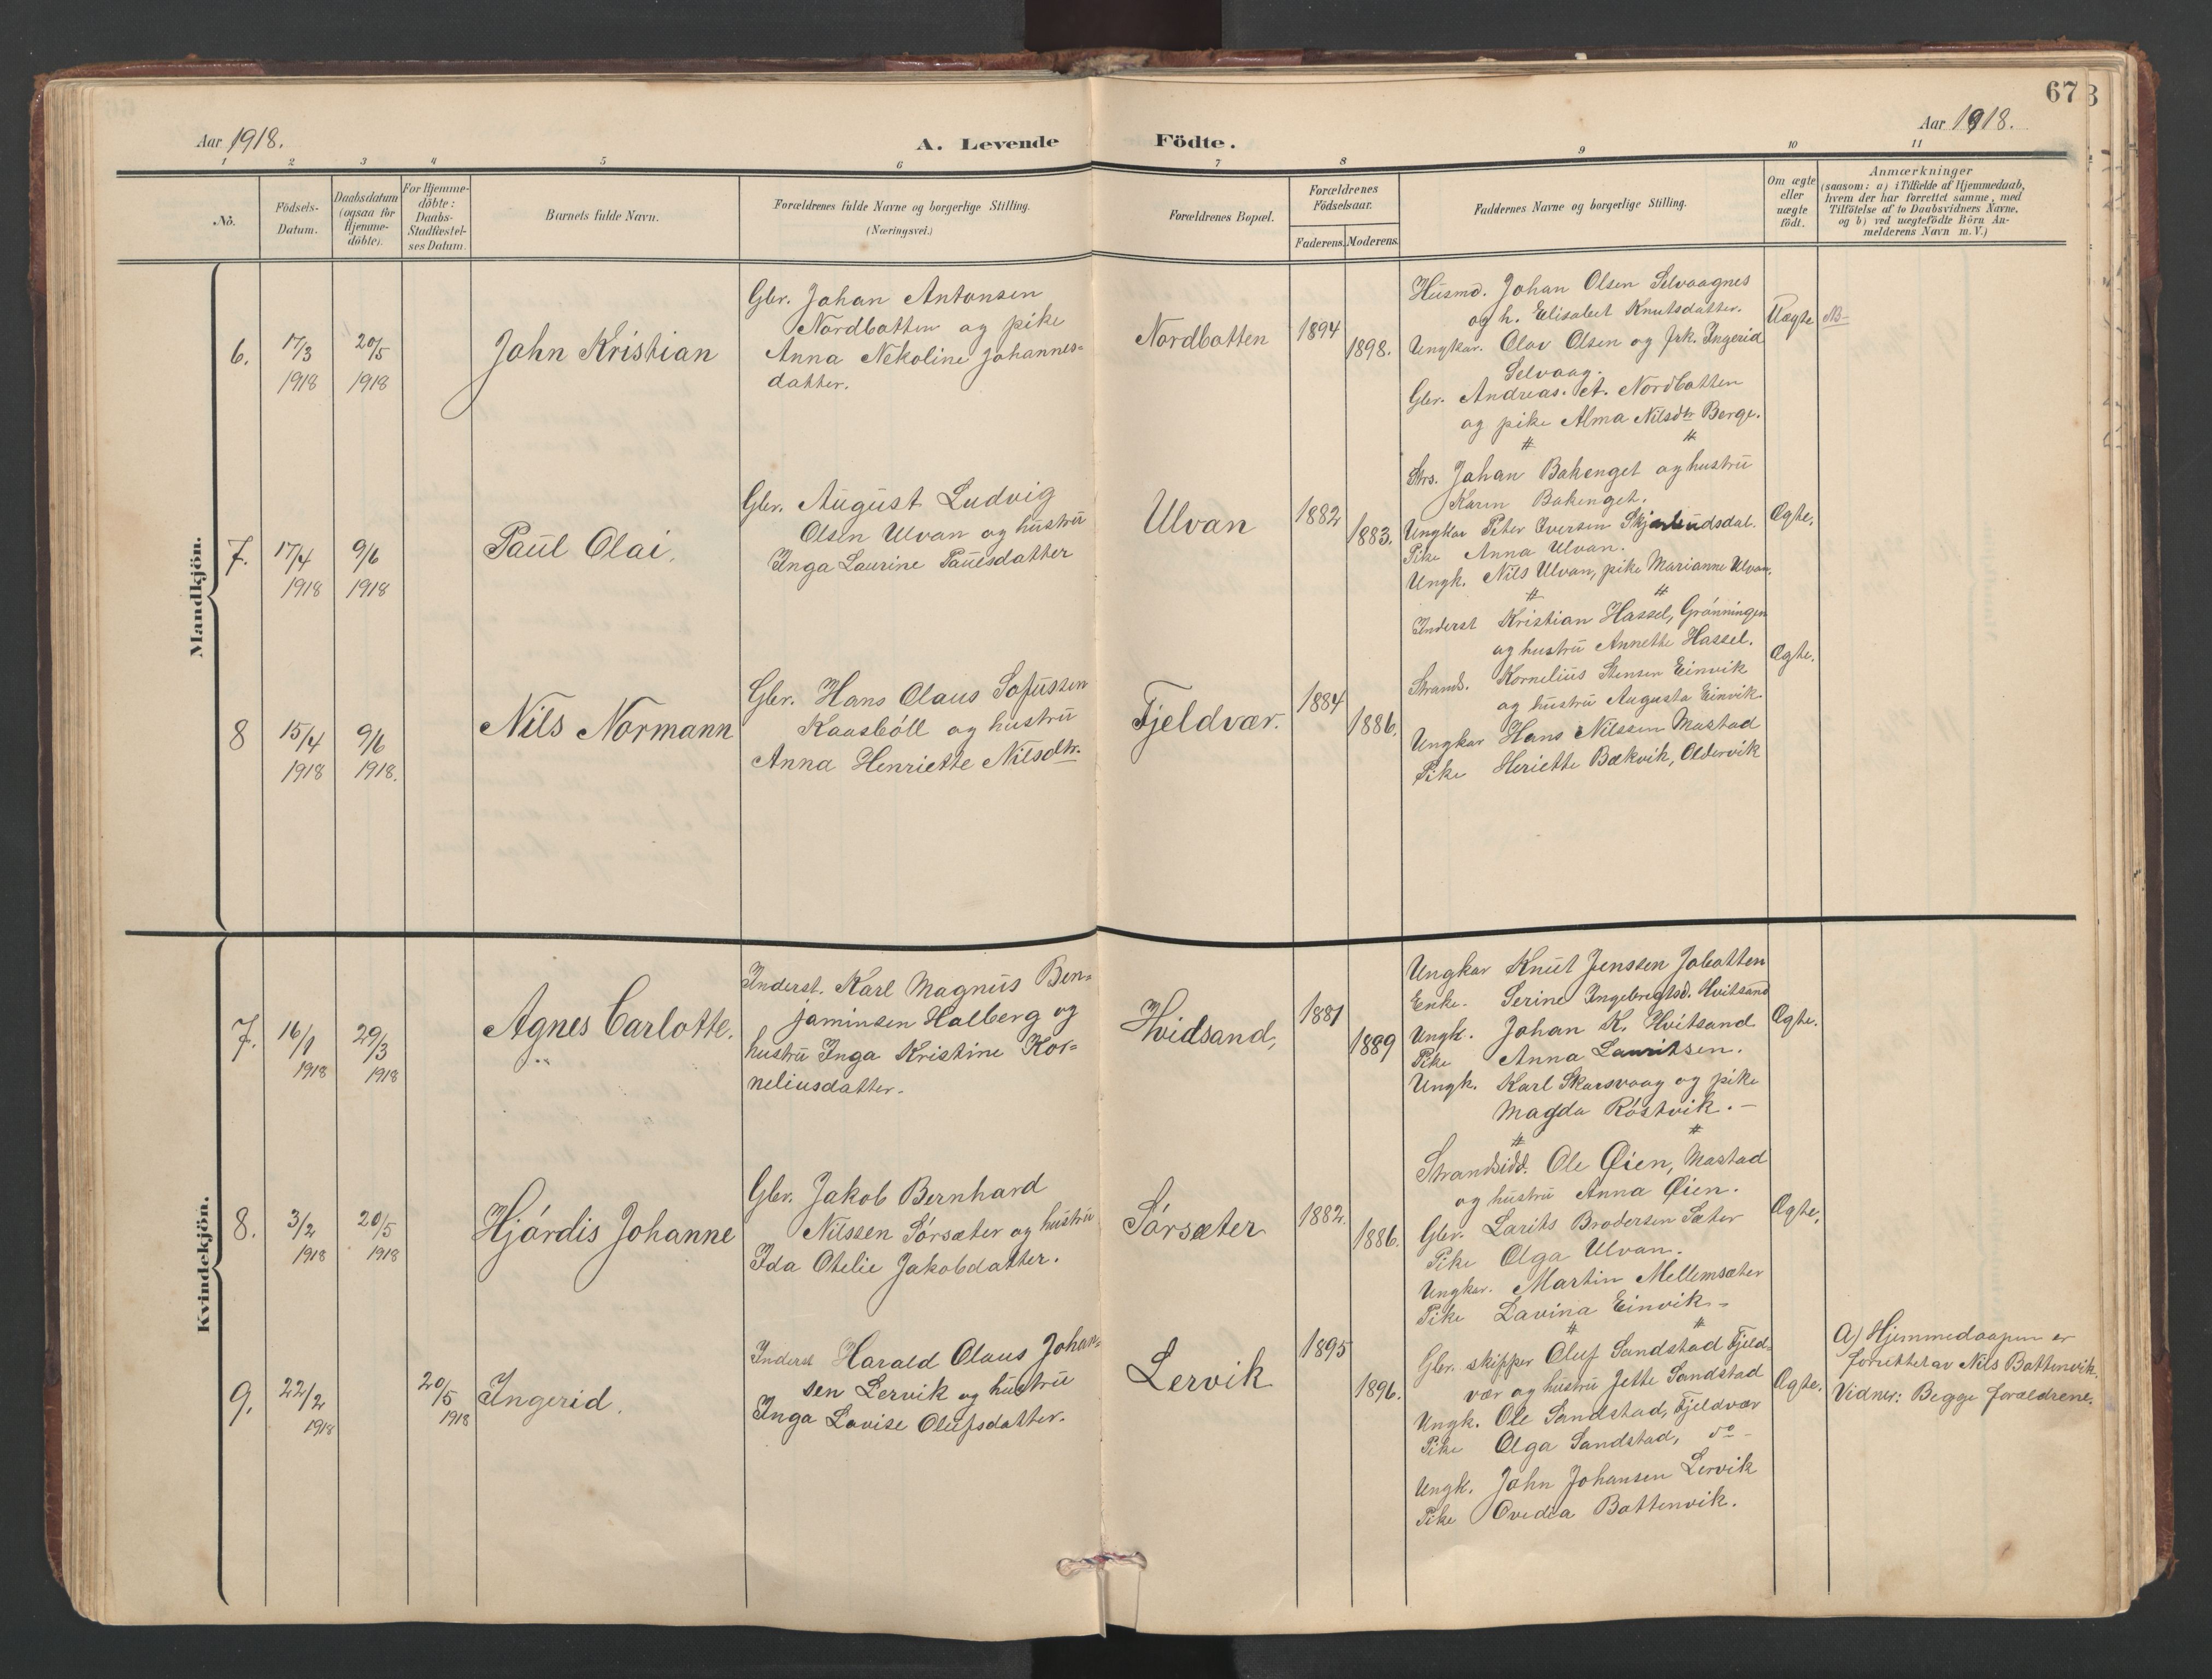 67
Aar 1918.
A. Levende Födte.
Aar 1918.
1 2 3 4 5 6 7 8 9 10 11
No.
Födsels-Datum.
Daabsdatum (ogsaa for Hjemme-döbte).
For Hjemme-döbte: Daabs-Stadfæstel-ses Datum.
Barnets fulde Navn.
Forældrenes fulde Navne og borgerlige Stilling.
(Næringsvei.)
Forældrenes Bopæl.
Forældrenes Födselsaar.
Faderens. Moderens.
Faddernes Navne og borgerlige Stilling.
Om ægte eller uægte födt.
Anmærkninger
(saasom: a) i Tilfælde af Hjemmedaab,
hvem der har forrettet samme, med
Tilföielse af to Daabsvidners Navne,
og b) ved uægtefödte Börn An-
melderens Navn m. V.)
Mandkjön.
6.
17/3 1918
20/5 1918
John Kristian
Gbr. Johan Antonsen
Nordbotten og pike
Anna Nekoline Johannes=
datter.
Nordbotten
1894
1898.
Husmd. Johan Olsen Selvaagnes
og h. Elisabet Knutsdatter.
Ungkar. Olav Olsen og frk. Ingerid
Selvaag.
Gbr. Andreas. A. Nordbotten
og pike Alma Nilsdtr Berge.
Uægte
7.
17/4 1918
9/6 1918
Paul Olai.
Gbr. August Ludvig
Olsen Ulvan og hustru
Inga Laurine Paulsdatter
Ulvan
1882
1883.
Strs. Johan Bakenget og hustru
Karen Bakenget.
Ungkar Peter Iversen
Pike Anna Ulvan.
Ungk. Nils Ulvan, pike Marianne Ulvan.
Ægte.
8
15/4 1918
9/6 1918.
Nils Normann
Gbr. Hans Olaus Sofussen
Kaasböll og hustru
Anna Henriette Nilsdtr.
Fjeldvær.
1884
1886.
Inderst Kristian Hassel, Grönningen
og hustru Annette Hassel.
Strands. Kornelius Stensen Einvik
og hustru Augusta Einvik.
Ungkar Hans Nilssen Mastad
Pike Heriette Bækvik, Oldervik
Ægte.
Kvindekjön.
7.
16/1 1918
29/3 1918
Agnes Carlotte.
Inderst. Karl Magnus Ben=
jaminsen Halberg og
hustru Inga Kristine Kor=
neliusdatter.
Hvidsand,
1881
1889
Ungkar Knut Jenssen Jøbotten
Enke. Serine Ingebregtsd. Hvitsand
Ungk. Johan K. Hvitsand
Pike Anna Lauritsen.
Ungk. Karl Skarsvaag og pike
Magda Röstvik. –
Ægte.
8.
3/2 1918
20/5 1918
Hjördis Johanne
Gbr. Jakob Bernhard
Nilssen Sörsæter og hustru
Ida Otelie Jakobdatter.
Sörsæter
1882.
1886.
Strandsidd. Ole Øien, Mastad
og hustru Anna Øien.
Gbr. Larits Brodersen Sæter
Pike Olga Ulvan.
Ungkar. Martin Mellemsæter
Pike Davina Einvik –
Ægte.
9.
22/2 1918
20/5 1918
Ingerid.
Inderst Harald Olaus Johan=
sen Lervik og hustru
Inga Lovise Olufsdatter.
Lervik
1895
1896.
Gbr. skipper Oluf Sandstad Fjeld=
vær og hustru Jette Sandstad
Ungk. Ole Sandstad, Fjeldvær
Pike Olga Sandstad, do –
Ungk. John Johansen Lervik
Pike Ovedia Battenvik.
Ægte.
A) Hjemmedaapen er
forrettet av Nils Battenvik.
Vidner: Begge forældrene.